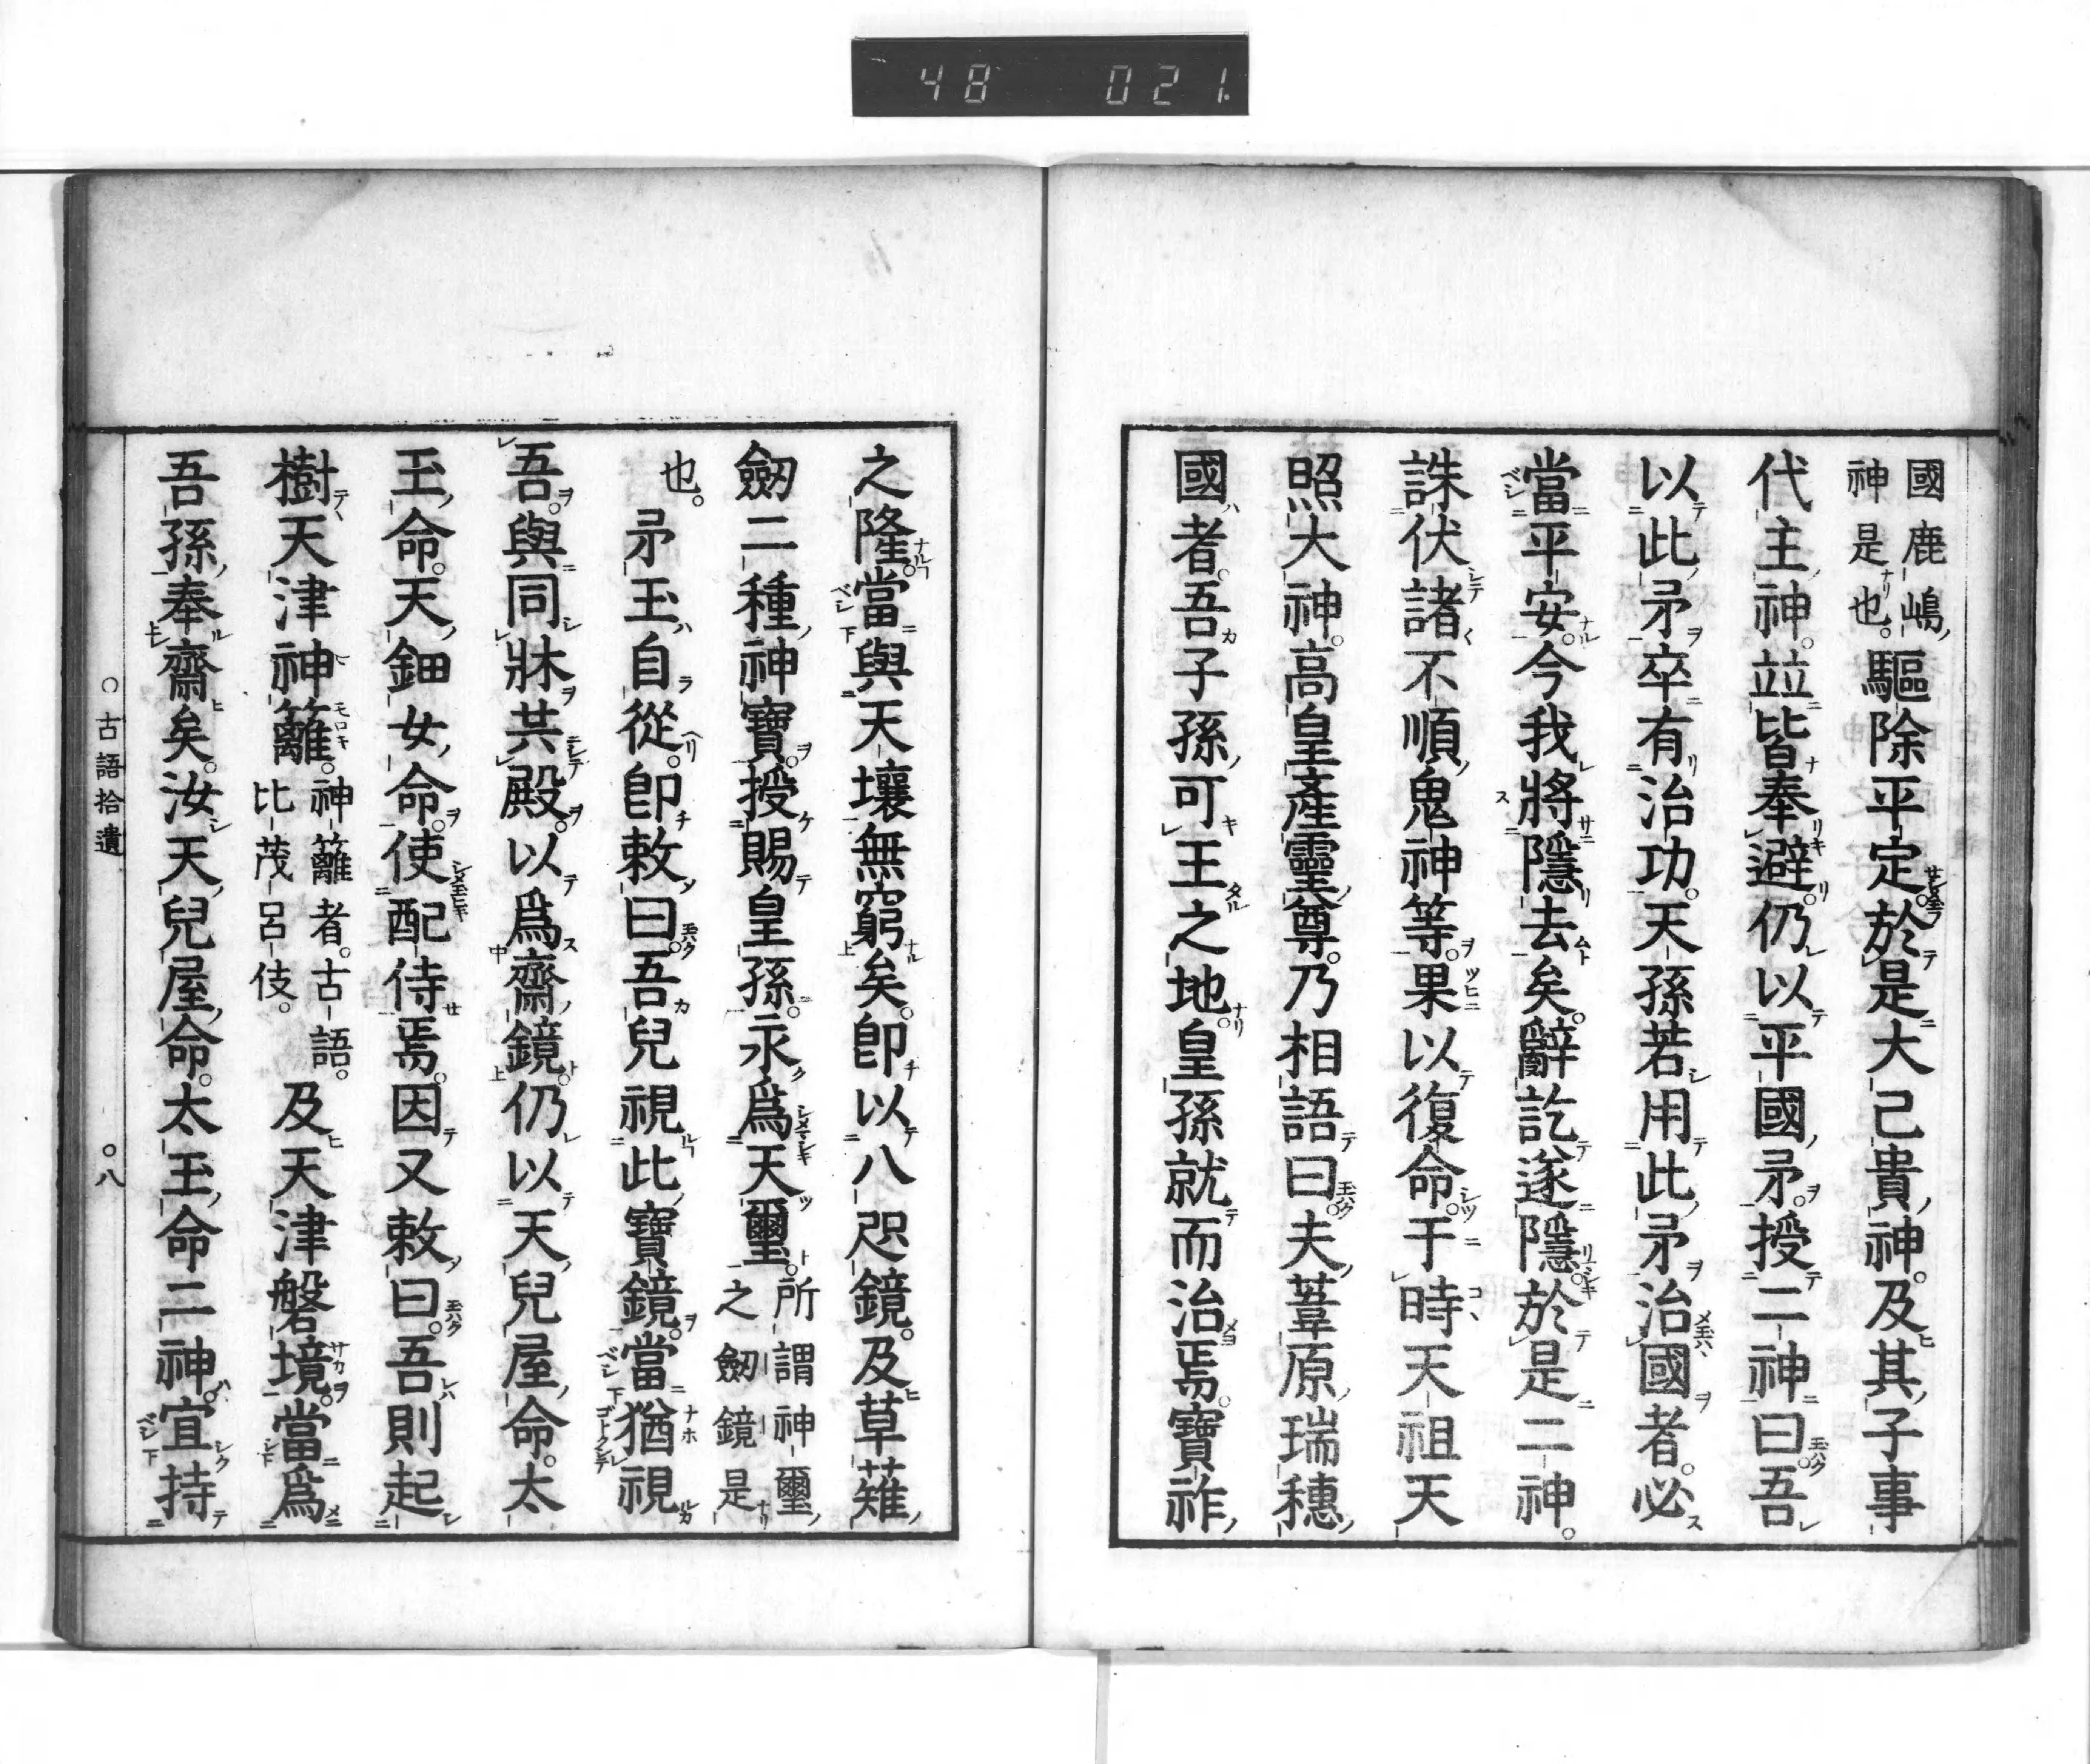 48 021.
國鹿嶋神是也。驅除平定。於是大己貴神。及其子事
代主神。竝皆奉避。仍以平國矛。授二神曰。吾
以此矛卒有治功。天孫若用此矛治國者。必
當平安。今我將隱去矣。辭訖遂隱。於是二神。
誅伏諸不順鬼神等。果以復命。于時天祖天
照大神。高皇產靈尊。乃相語曰。夫葦原瑞穗
國者。吾子孫可王之地。皇孫就而治焉。寶祚
之隆。當與天壤無窮矣。卽以八咫鏡。及草薙
劒二種神寶。授賜皇孫。永爲天璽。所謂神璽之劒鏡是
也。矛玉自從。卽敕曰。吾兒視此寶鏡。當猶視
吾。與同牀共殿。以爲齋鏡。仍以天兒屋命。太
玉命。天鈿女命。使配侍焉。因又敕曰。吾則起
樹天津神籬。神籬者。古語。比茂呂伎。及天津磐境。當爲
吾孫奉齋矣。汝天兒屋命。太玉命二神。宜持
○古語拾遺 ○八